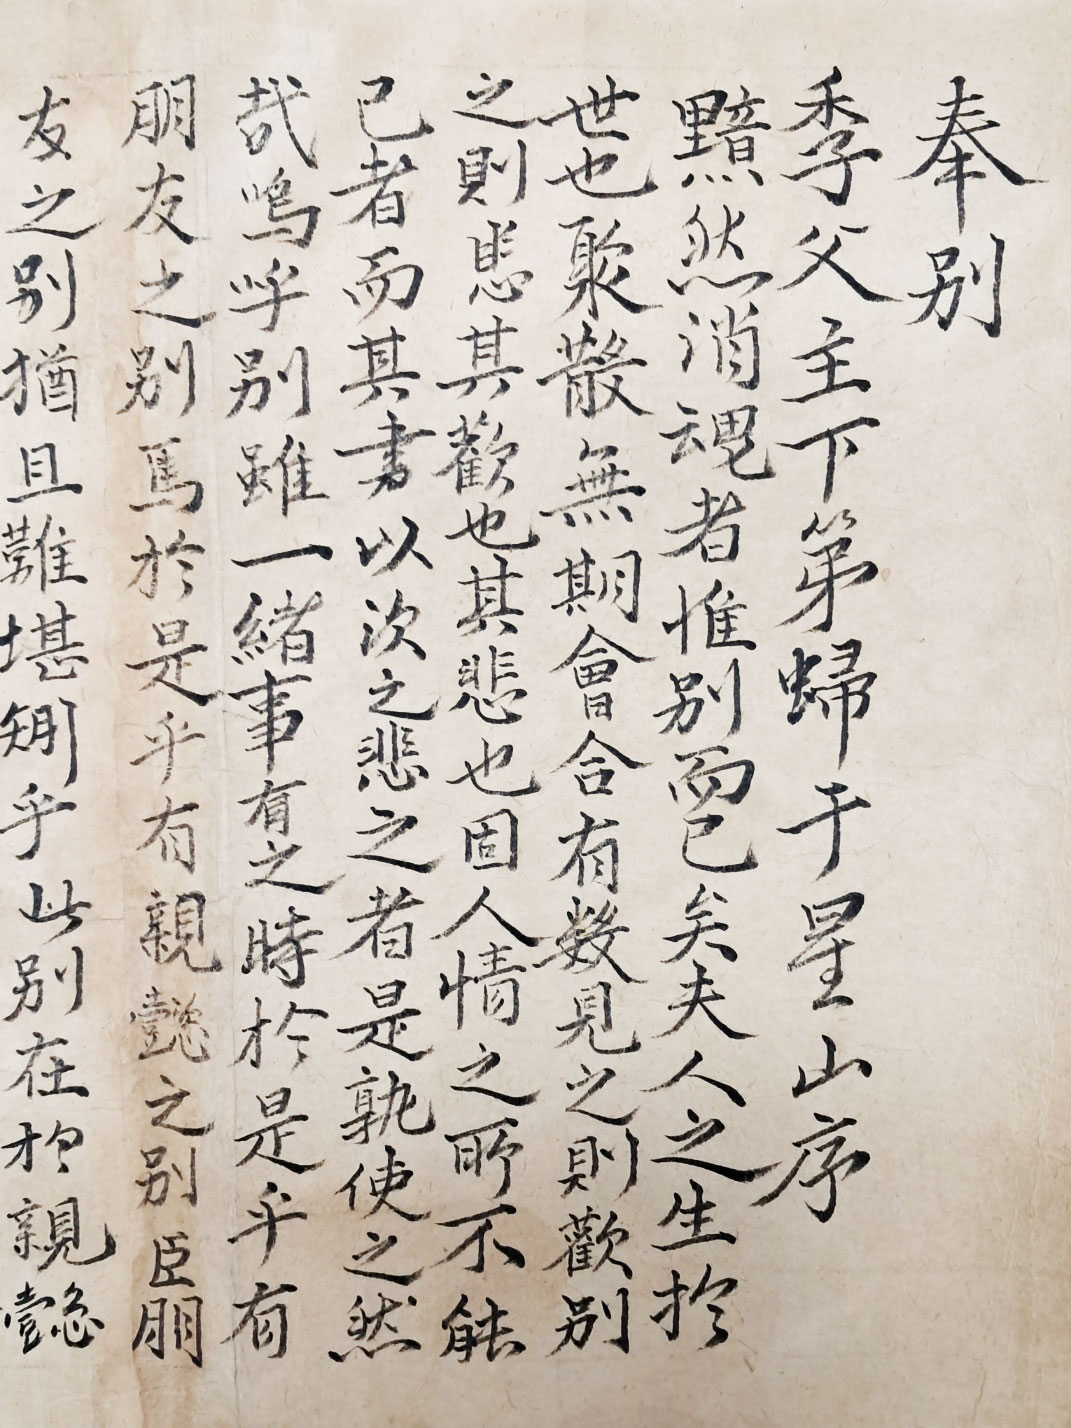 奉别
季父主下第歸于星山序
黯然消魂者惟别而已矣夫人之生於
世也聚散無期會合有數見之則歡别
之則悲其歡也其悲也固人情之所不能
已者而其書以次之悲之者是孰使之然
哉嗚呼别雖一緖事有之時於是乎有
朋友之别焉於是乎有親懿之别臣朋
友之别猶且難堪矧乎此别在於親懿